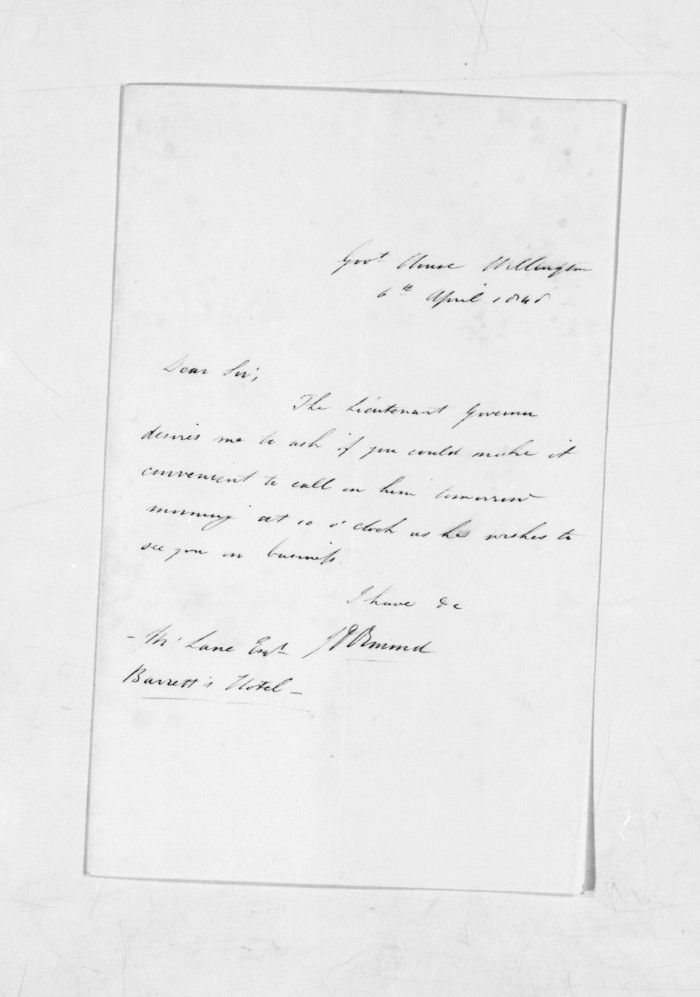 Govt House Wellington
6th April 1848
Dear Sir,
The Lieutenant Governor
desires me to ask if you could make it
convenient to call on him tomorrow
morning at 10 o'clock as he wishes to
see you on business.
I have &c
Mc Lane Esqr JDOrmond
Barrett's Hotel